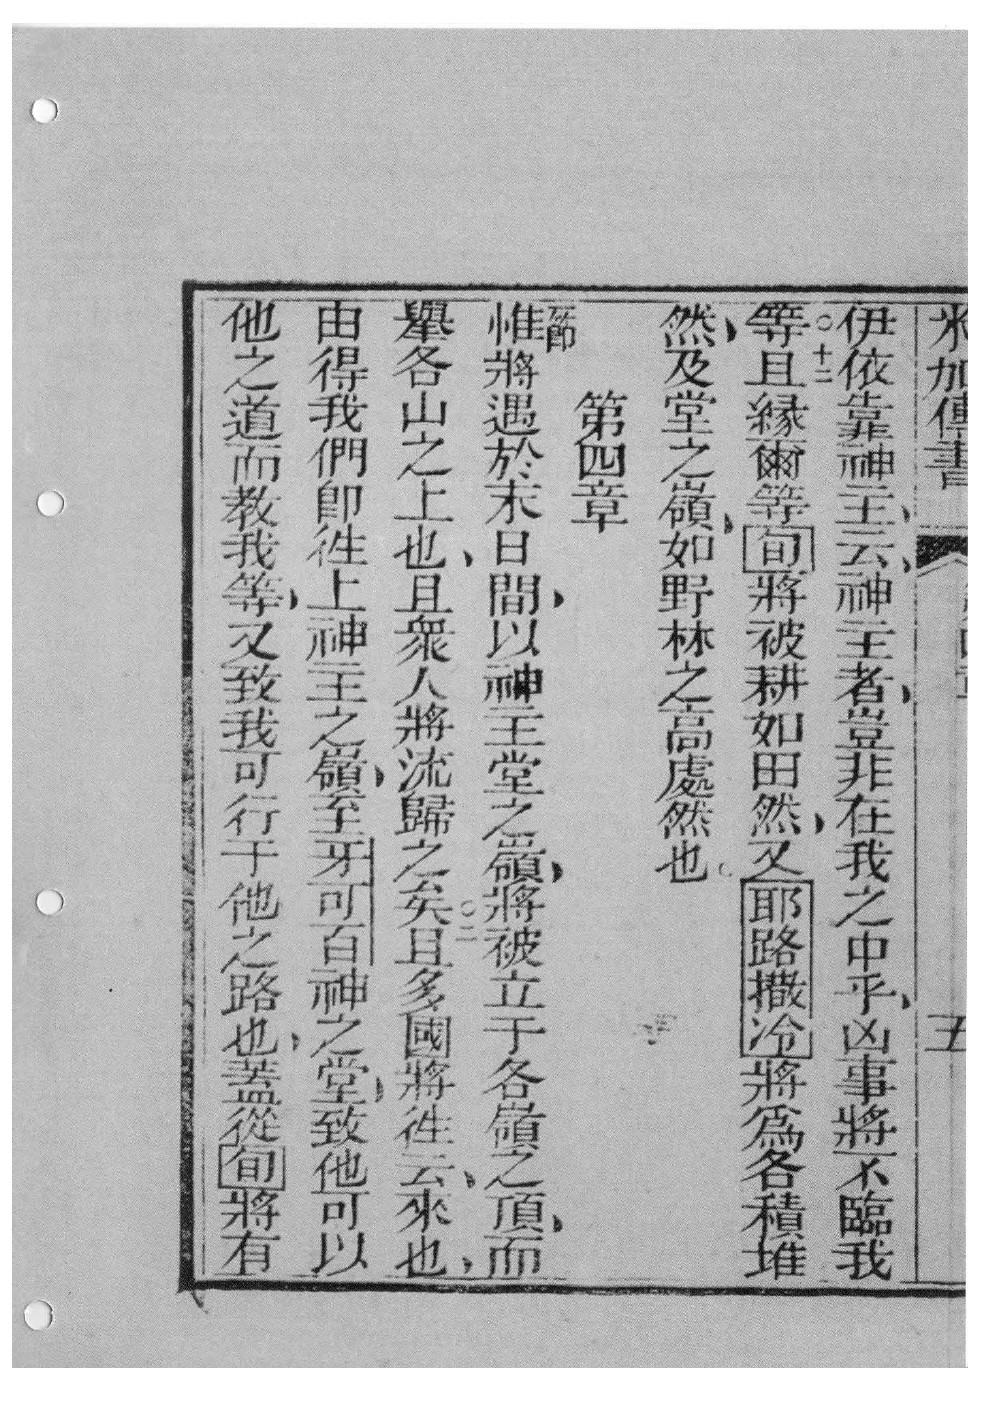 米加傳書 五
伊依靠神主、云、神主者、豈非在我之中乎、凶事將不臨我
等○十二且緣爾等旬將被耕如田然、又耶路撒冷將爲各積堆
然、及堂之嶺、如野林之高處然也。
第四章
一節惟將遇於末日間、以神主堂之嶺、將被立于各嶺之頂、而
舉各山之上也、且衆人將流歸之矣○二且多國將徃云、來也、
由得我們卽徃上神主之嶺、至牙可百神之堂、致他可以
他之道而教我等、又致我可行于他之路也、蓋從旬將有